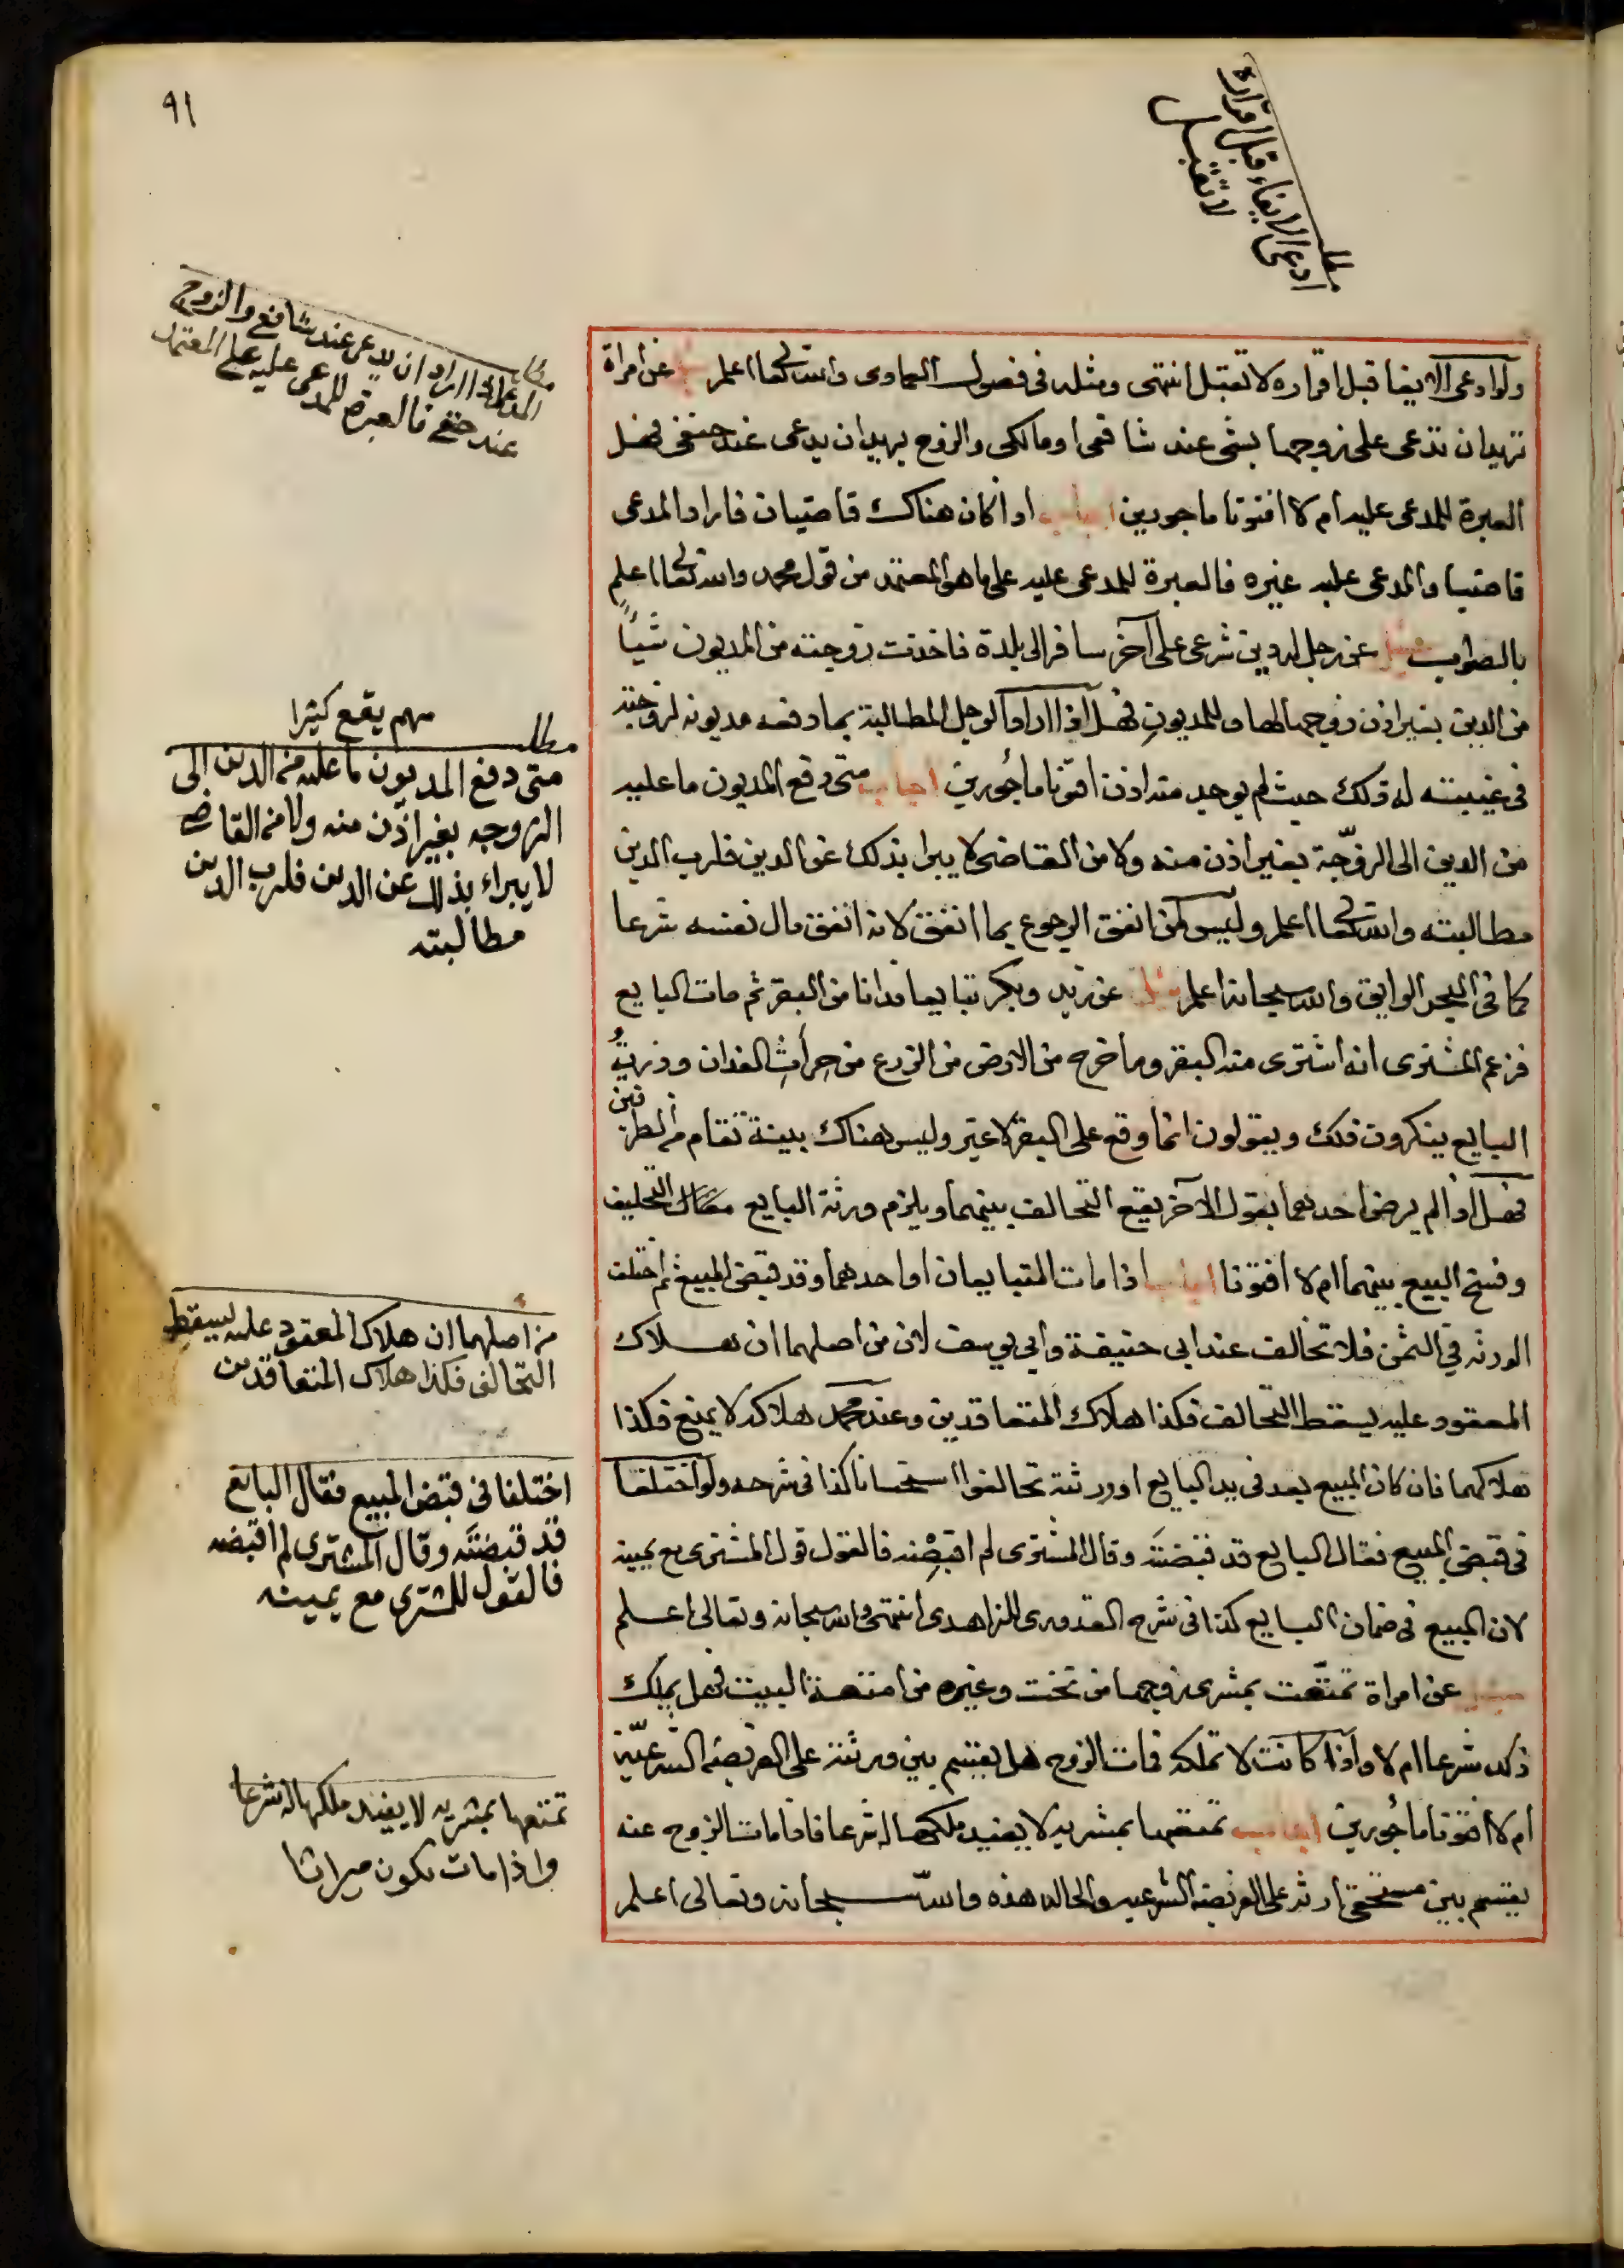 ٩١
مطلب
ادعى الايفاء قبل اقراره
لا تقبل
ولو ادعى الايفا قبل اقراره لا تقبل انتهى ومثله فى فصول العماوى والله تعالى اعلم سئل عن امراة
تريد ان تدعى على زوجها بشى عند شافعى او مالكى والزوج يريد ان يدعى عند حنفى فهل
العبرة للمدعى عليه ام لا افتونا ماجورين اجاب اذا كان هناك قاضيان فاراد المدعى
قاضيا والمدعى عليه غيره فالعبرة للمدعى عليه على ما هو المعتمد من قول محمد والله تعالى اعلم
بالصواب سئل عن رجل له دين شرعى على آخر سافر الى بلدة فاخذت زوجته من المديون شيأً
من الدين بغير اذن زوجها لها وللمديون فهل اذا اراد الرجل المطالبة بما دفعه مديونه لزوجته
فى غيبته له ذلك حيث لم يوجد منه اذن افتونا ماجورين اجاب متى دفع المديون ما عليه
من الدين الى الزوجة بغير اذن منه ولا من القاضى لا يبرا بذلك عن الدين فلرب الدين
مطالبته والله تعالى اعلم وليس لمن انفق الرجوع بما انفق لانه انفق مال نفسه شرعا
كما فى البحر الرايق والله سبحانه اعلم سئل عن زيد وبكر تبايعا فدانا من البقر ثم مات البايع
فزعم المشترى انه اشترى منه البقر وما خرج من الارض من الزرع من حراث الفدان وذرية
البايع ينكرون ذلك ويقولون انما وقع على البقر لا غير وليس هناك بينة تقام من الطرفين
فهل اذا لم يرض احدهما بقول الآخر يقع التحالف بينهما ويلزم ورثة البايع التحليف
وفسخ البيع بينهما ام لا افتونا اجاب اذا مات المتبايعان او احدهما وقد قبض المبيع ثم اختلف
الورثه فى الثمن فلا تحالف عند ابى حنيفة وابى يوسف لان من اصلهما ان هلاك
المعقود عليه يسقط التحالف فكذا هلاك المتعاقدين وعند محمد هلاكه لا يمنع فكذا
هلاكهما فان كان المبيع بعد فى يد البايع او ورثته تحالفوا استحسانا كذا فى شرحه ولو اختلفا
فى قبض المبيع فقال البايع قد قبضته وقال المشترى لم اقبضه فالقول قول المشترى مع يمينه
لان المبيع فى ضمان البايع كذا فى شرح القدورى للزاهدى انتهى والله سبحانه وتعالى اعلم
سئل عن امراة تمتعت بمشرى زوجها من تخت وغيره من امتعة البيت فهل يملك
ذلك شرعا ام لا واذا كانت لا تملكه فمات الزوج هل يقسم بين ورثته على الفريضة الشرعية
ام لا افتونا ماجورين اجاب تمتعها بمشريه لا يفيد ملكها له شرعا فاذا مات الزوج عنه
يقسم بين مستحقى ارثه على الفريضة الشرعيه والحاله هذه والله سبحانه وتعالى اعلم
المدعى اذا اراد ان يدعى عند شافعى والزوج
عند حنفى فالعبرة للمدعى عليه على المعتمد
مهم يقع كثيرا
مطلب
متى دفع المديون ما عليه من الدين الى
الزوجه بغير اذن منه ولا من القاضى
لا يبراء بذلك عن الدين فلرب الدين
مطالبته
من اصلهما ان هلاك المعقود عليه يسقط
التحالف فكذا هلاك المتعاقدين
اختلفا فى قبض المبيع فقال البايع
قد قبضته وقال المشترى لم اقبضه
فالقول للمشترى مع يمينه
تمتعها بمشريه لا يفيد ملكها له شرعا
واذا مات تكون ميراثا